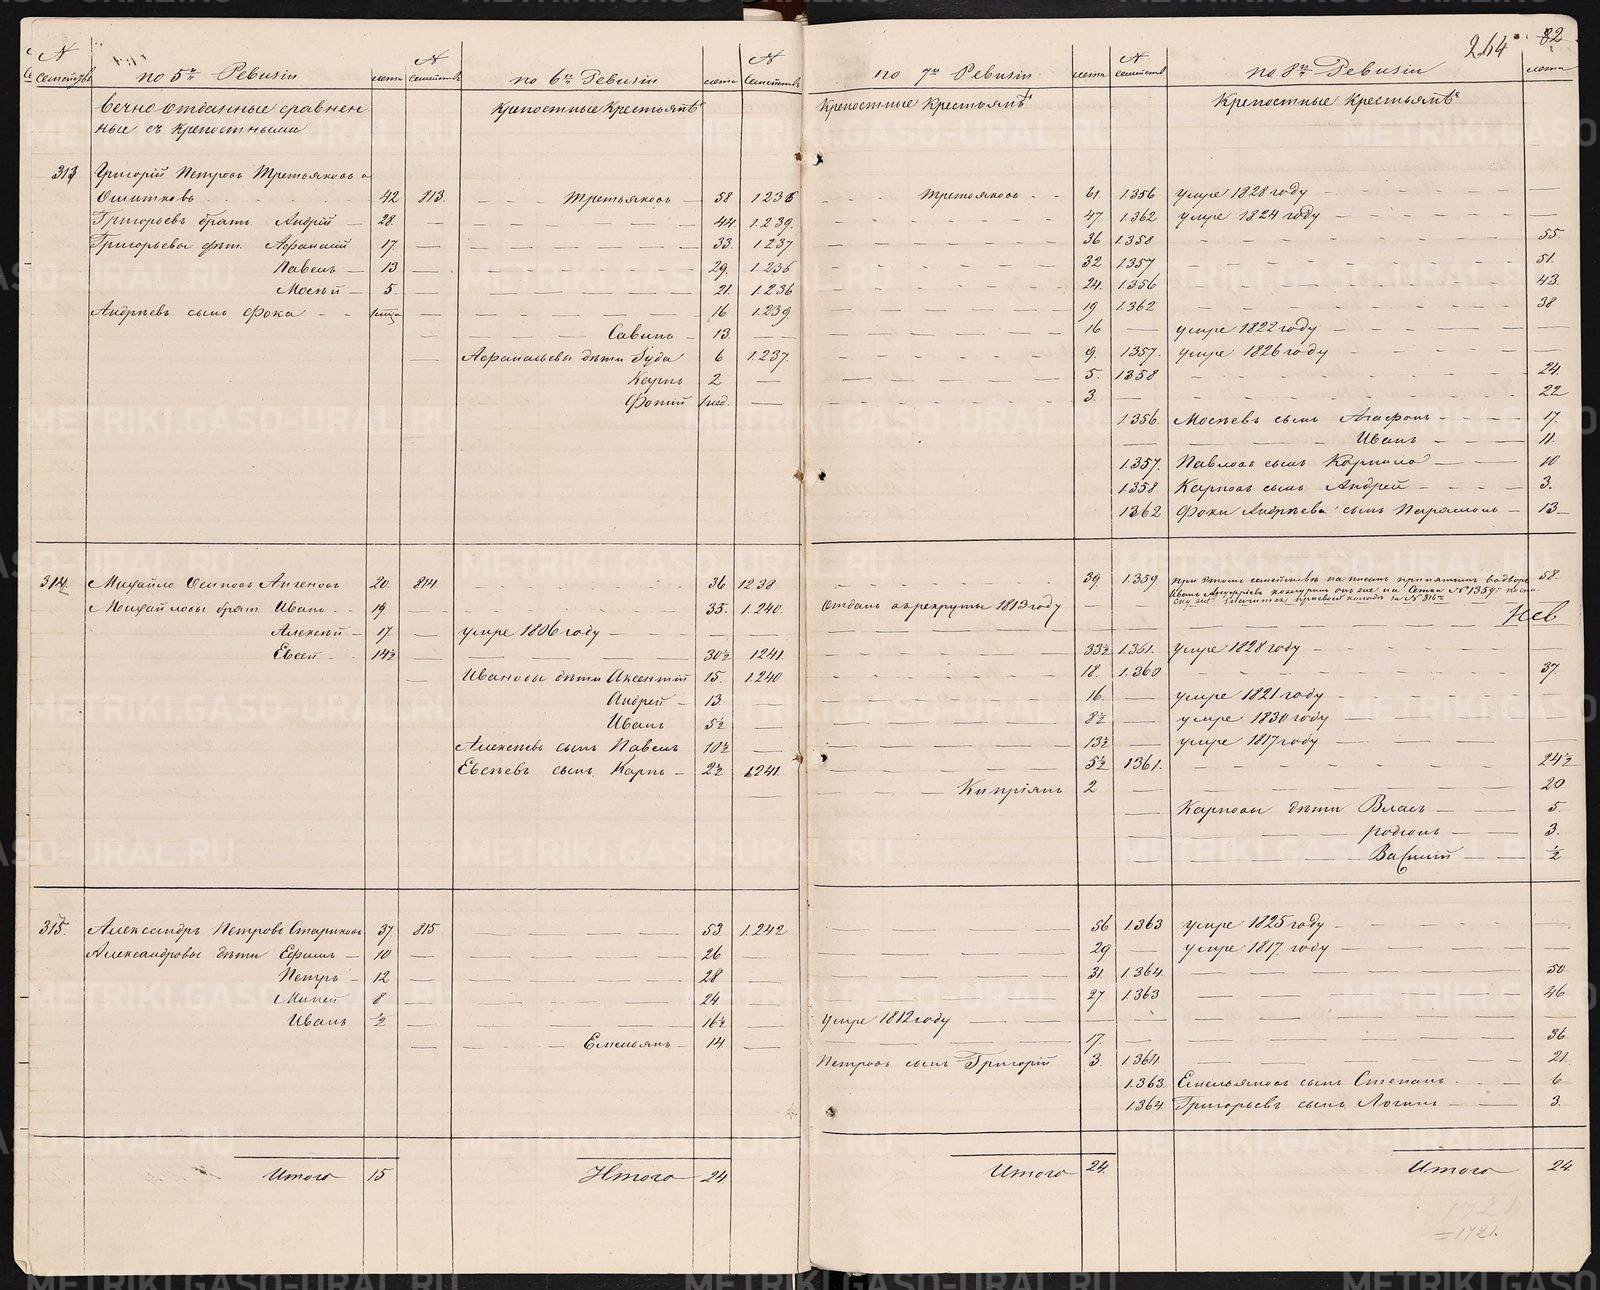 264 82
№ семействъ по 5й Ревизіи лѣта № семействъ по 6й Ревизіи лѣта № семействъ по 7й Ревизіи лѣта № семействъ по 8й Ревизіи лѣта
Вечно отданные сравнен Крепостные Крестьянѣ Крепостные Крестьянѣ Крепостные Крестьянѣ
ные съ крепостными
313 Григорій Петровъ Третьяковъ
42 813. Третьяковъ 58 1236 Третьяковъ 61. 1356 умре 1828 году
Григорьевъ братъ Андрей 28. 44. 1.239. 47. 1362 умре 1824 году
Григорьевы дѣт. Афанасій 17. 33. 1.237 36 1358 55.
Павелъ 13 29. 1.236 32 1357 51.
Мосѣй 5. 21. 1.236 24. 1356 43.
Андрѣевъ сынъ Фока 16 1.239 19 1.362 38
Савинъ 13. 16 умре 1822 году
Афанасьевы дѣти Іуда 6 1.237. 9. 1357. умре 1826 году
Карпъ 2 5. 1358 24.
Фотій 1 нед. 3. 22
1356. Мосѣевъ сынъ Агафонъ 17.
Иванъ 11.
1357. Павловъ сынъ Корнило 10
1358 Карповъ сынъ Андрей 3.
1362 Фоки Андрѣева сынъ Парамонъ 13
314 Михайло Осиповъ 20. 814 36 1238 39 1.359 при этомъ семействѣ написанъ 58.
Михайловы брат. Иванъ 19. 35. 1.240. Отданъ въ рекруты 1813 году
Алексѣй 17. умре 1806 году
Евсей 14½ 30½ 1241. 33½ 1.361. умре 1828 году
Ивановы дѣти Аксентій 15. 1.240 18. 1.360 37.
Андрей 13. 16. умре 1821 году
Иванъ 5½ 8½ умре 1830 году
Алексѣевъ сынъ Павелъ 10½ 13½ умре 1817 году
Евсѣевъ сынъ Карпъ 2½ 1241. 5½ 1361. 24½
Кипріянъ 2 20
Карповы дѣти Власъ 5.
Родіонъ 3.
Василій ½
315. Александръ Петровъ Стариковъ 37 815 53 1.242 56 1363 умре 1825 году
Александровы дѣти Ефимъ 10 26 29. умре 1817 году
Петръ 12 28 31. 1.364. 50
Миней 8 24 27 1.363 46
Иванъ ½ 16½ умре 1812 году
Емельянъ 14. 17. 36
Петровъ сынъ Григорій 3. 1.364 21.
1.363. Емельяновъ сынъ Степанъ 6
1364. Григорьевъ сынъ Логинъ 3.
Итого 15 Итого 24 Итого 24. Итого 24.
METRIKI.GASO-URAL.RU